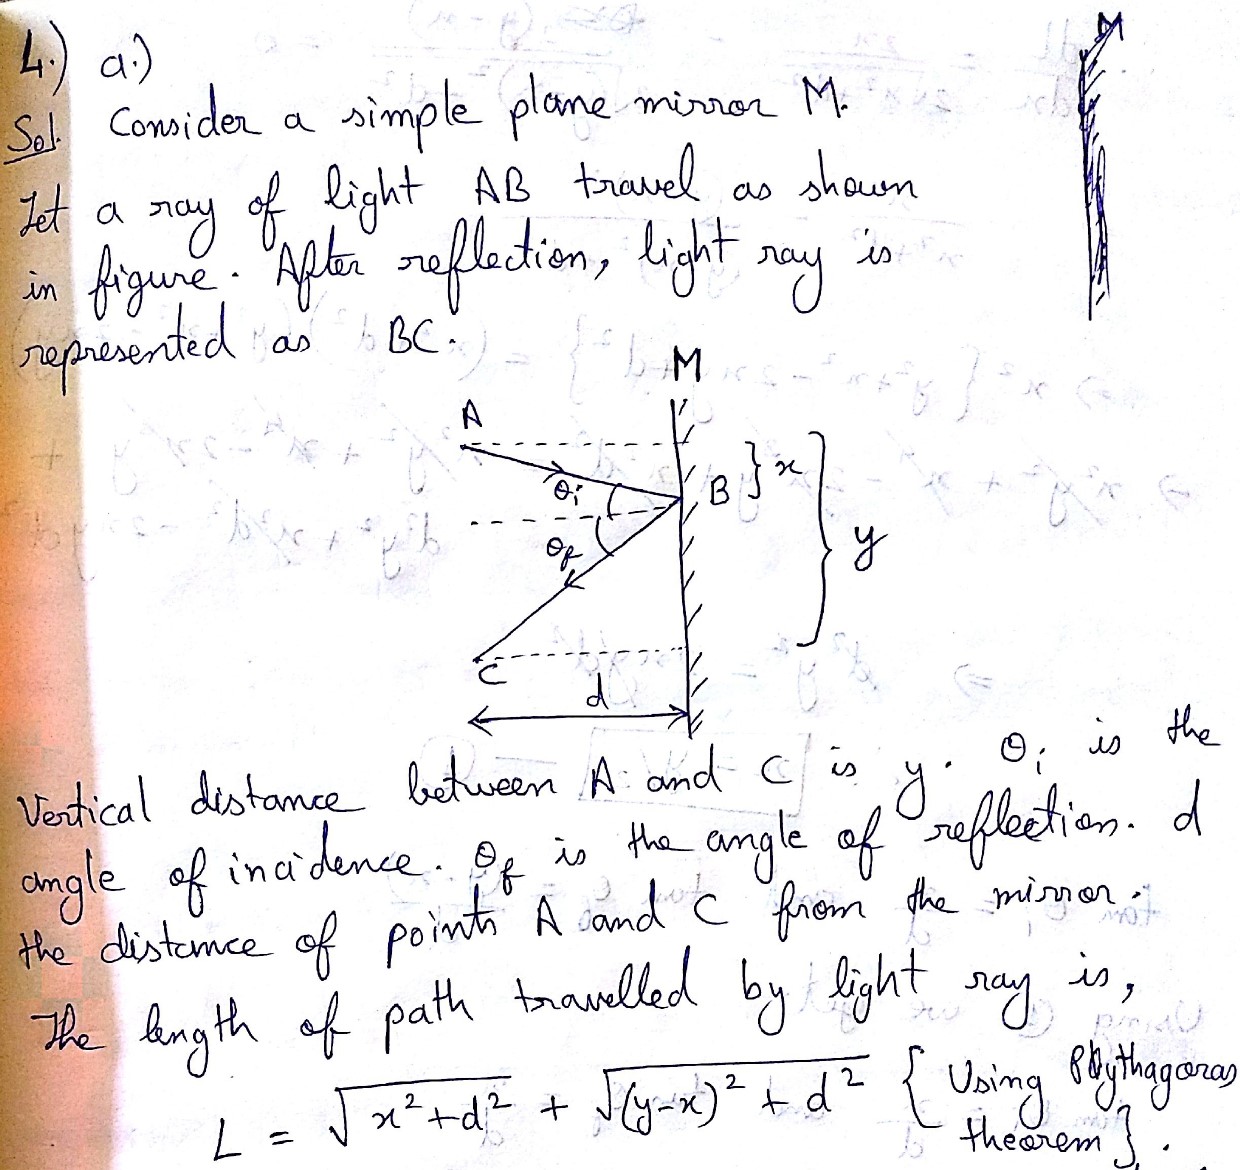 4.) a.)
M
Sol. Consider a simple plane mirror M.
Let a ray of light AB travel as shown
in figure. After reflection, light ray is
represented as BC.
M
A
B } x
θi
} y
θf
C
d
Vertical distance between A and C is y. θi is the
angle of incidence. θf is the angle of reflection. d
the distance of points A and C from the mirror.
The length of path travelled by light ray is,
L = √x²+d² + √(y-x)² + d² { Using Pythagoras
theorem }.